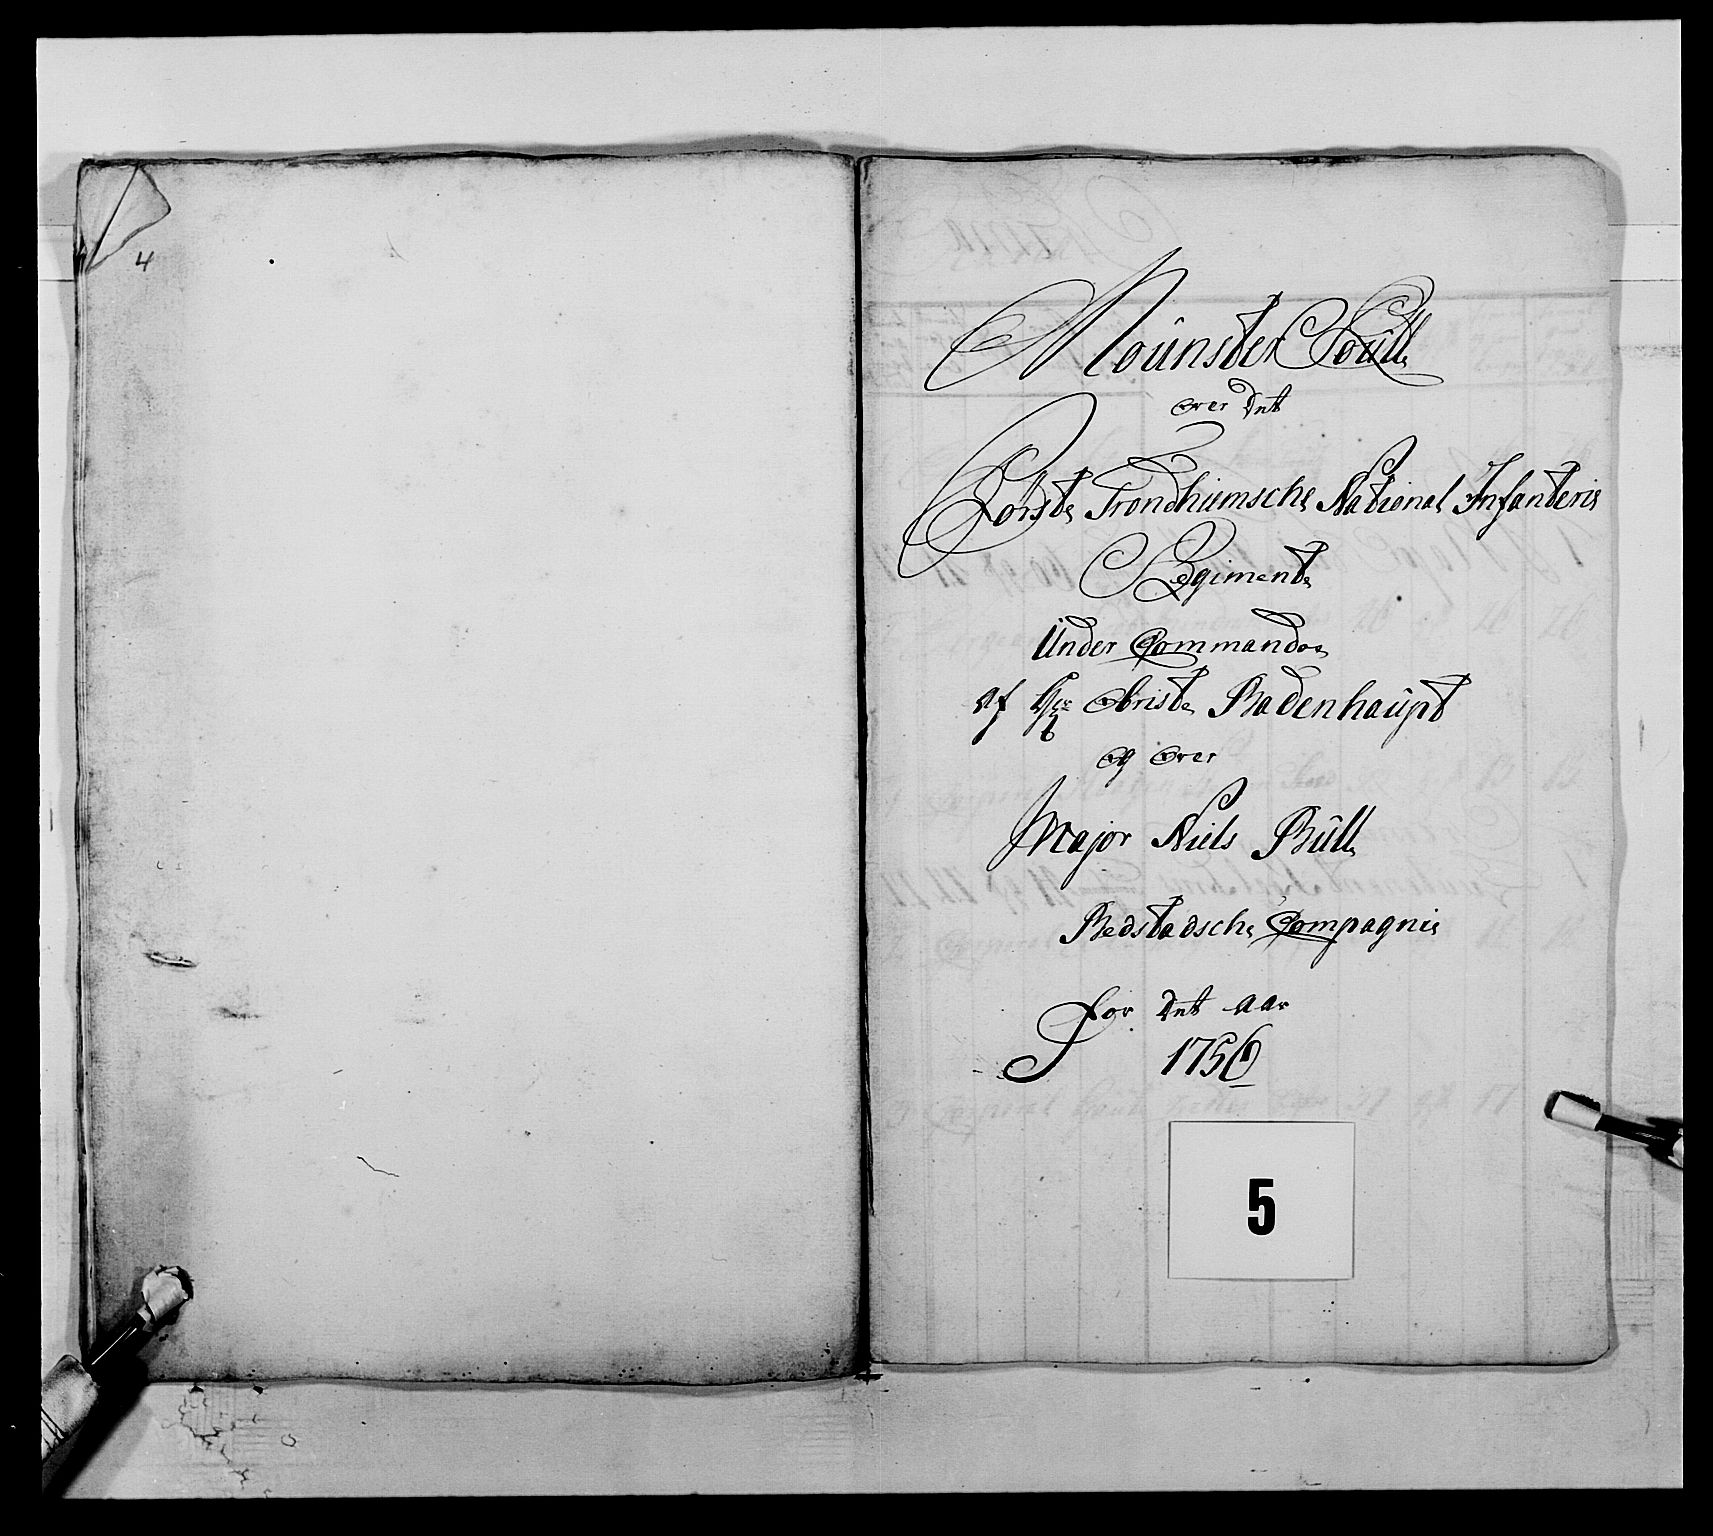 4
Moünster Roüll
over det
Förste Trondhiemsche National Infanterie
Regimente
Under Commando
af Hr Obriste Badenhaüpt
og over
Major Niels Büll
Bedstadsche Compagnie
for det aar
1756
5